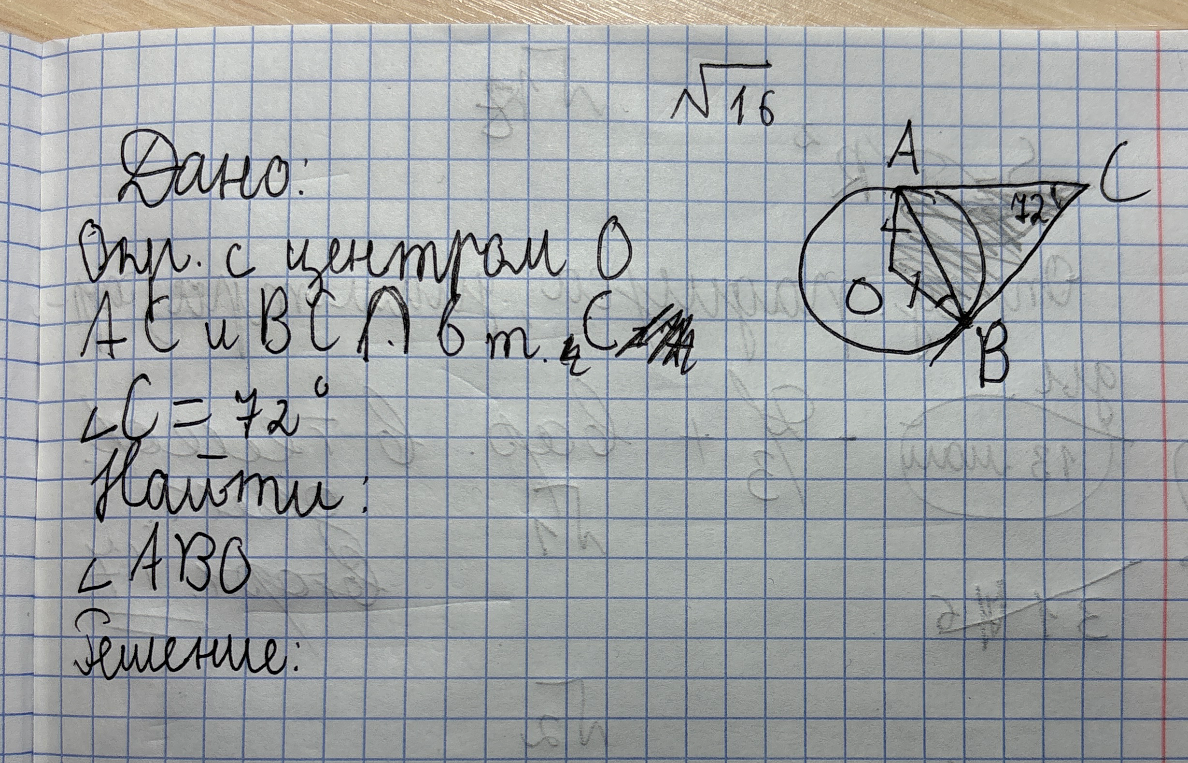 √16
Дано:
Окр. с центром O
AC и BC ∩ в т. C
∠C = 72°
Найти:
∠ABO
Решение:
A
C
72°
O
B